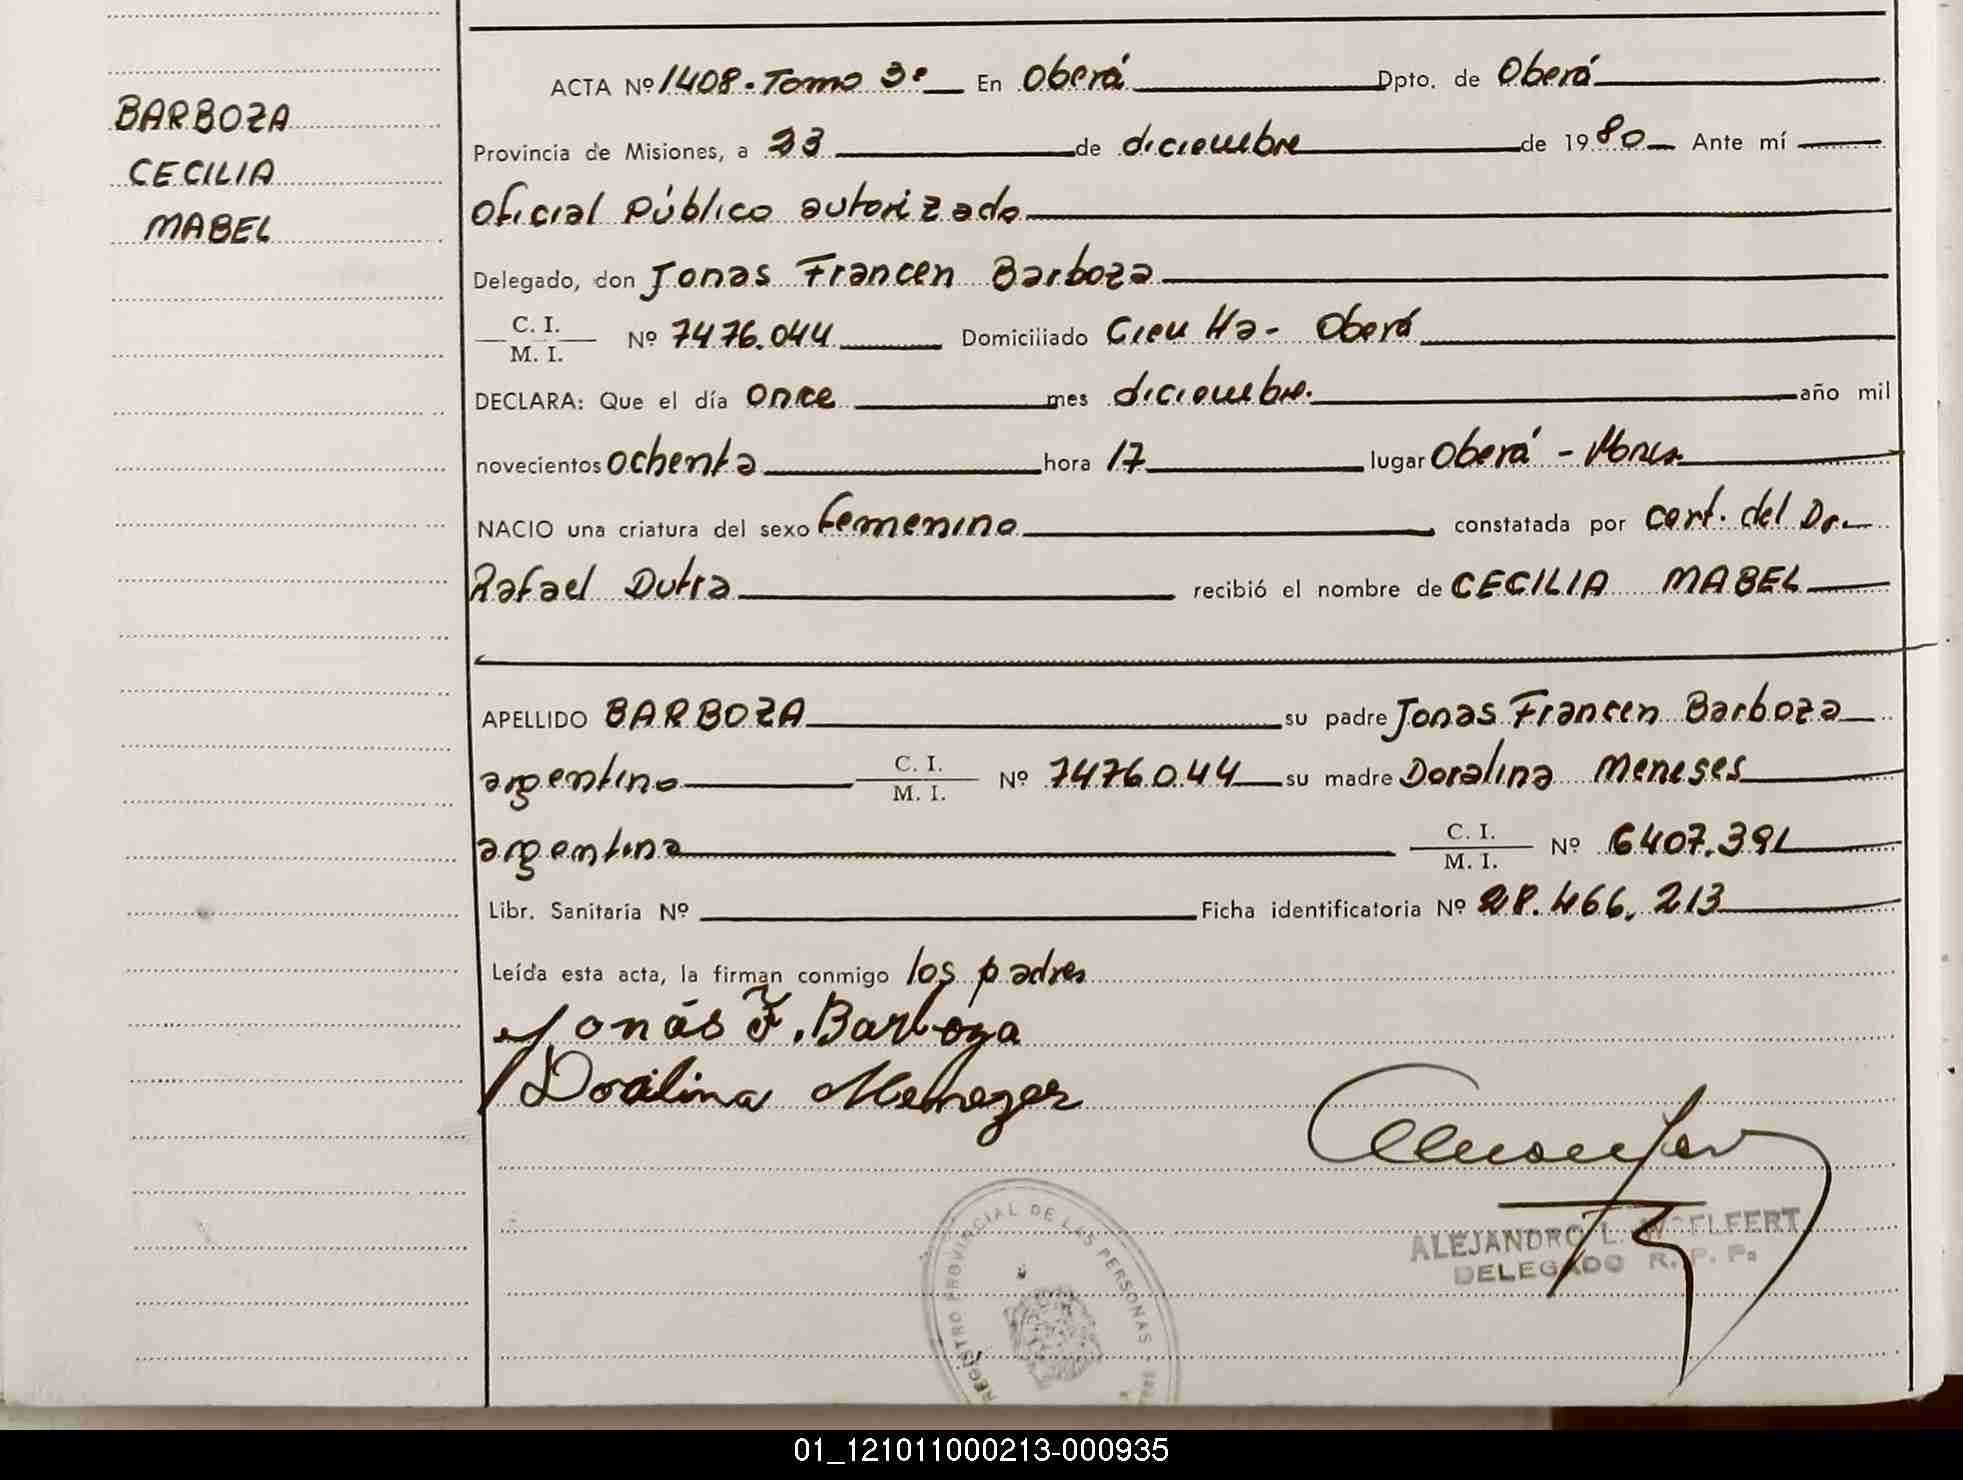 BARBOZA
CECILIA
MABEL
ACTA Nº 1408. Tomo 3º En Oberá Dpto. de Oberá
Provincia de Misiones, a 23 de diciembre de 1980 Ante mí
Oficial Público autorizado
Delegado, don Jonas Francen Barboza
C. I.
M. I. Nº 7476.044 Domiciliado Cien Ha - Oberá
DECLARA: Que el día once mes diciembre. año mil
novecientos ochenta hora 17 lugar Oberá - Mnes.
NACIO una criatura del sexo femenino constatada por cert. del Dr.
Rafael Dutra recibió el nombre de CECILIA MABEL
APELLIDO BARBOZA su padre Jonas Francen Barboza
argentino C. I.
M. I. Nº 7476.044 su madre Doralina Meneses
argentina C. I.
M. I. Nº 6407.391
Libr. Sanitaria Nº Ficha identificatoria Nº 28.466.213
Leída esta acta, la firman conmigo los padres
Jonás F. Barboza
Doralina Menezes
REGISTRO PROVINCIAL DE LAS PERSONAS
ALEJANDRO L. WOELFERT
DELEGADO R. P. P.
01_121011000213-000935